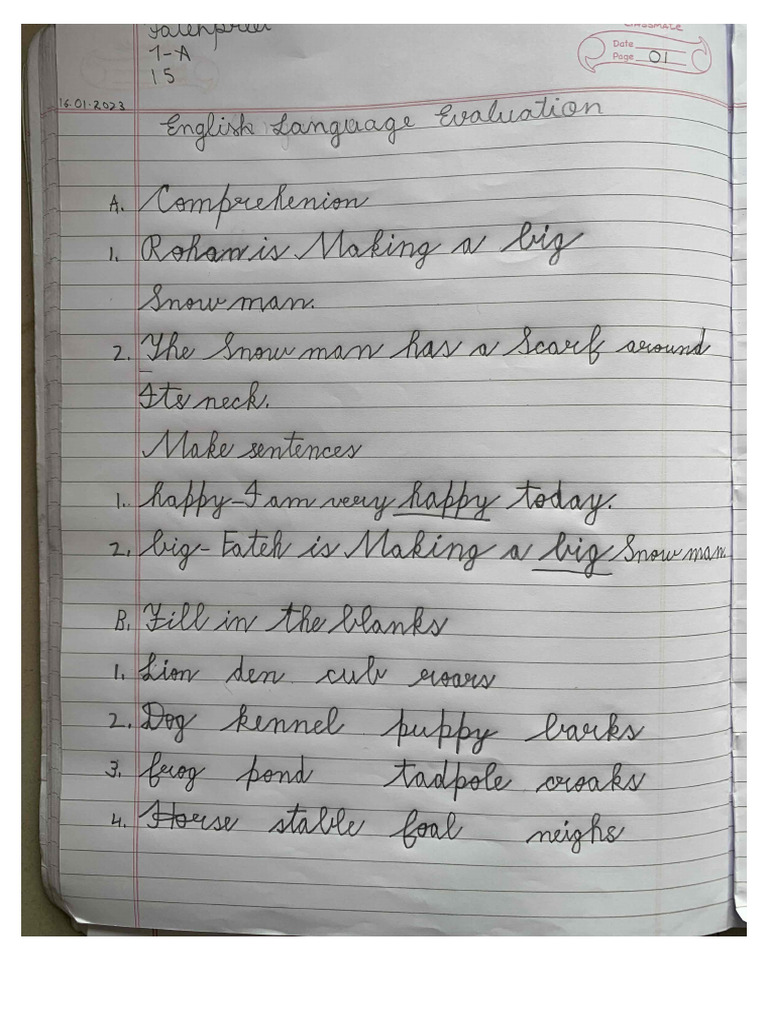 1-A
15
CLASSMATE
Date
Page 01
16.01.2023
English Language Evaluation
A. Comprehenion
1. Rohan is Making a big
Snow man.
2. The Snow man has a Scarf around
Its neck.
Make sentences
1. happy - I am very happy today.
2. big - Fateh is Making a big Snow man.
B. Fill in the blanks
1. Lion den cub roars
2. Dog kennel puppy barks
3. frog pond tadpole croaks
4. Horse stable foal neighs